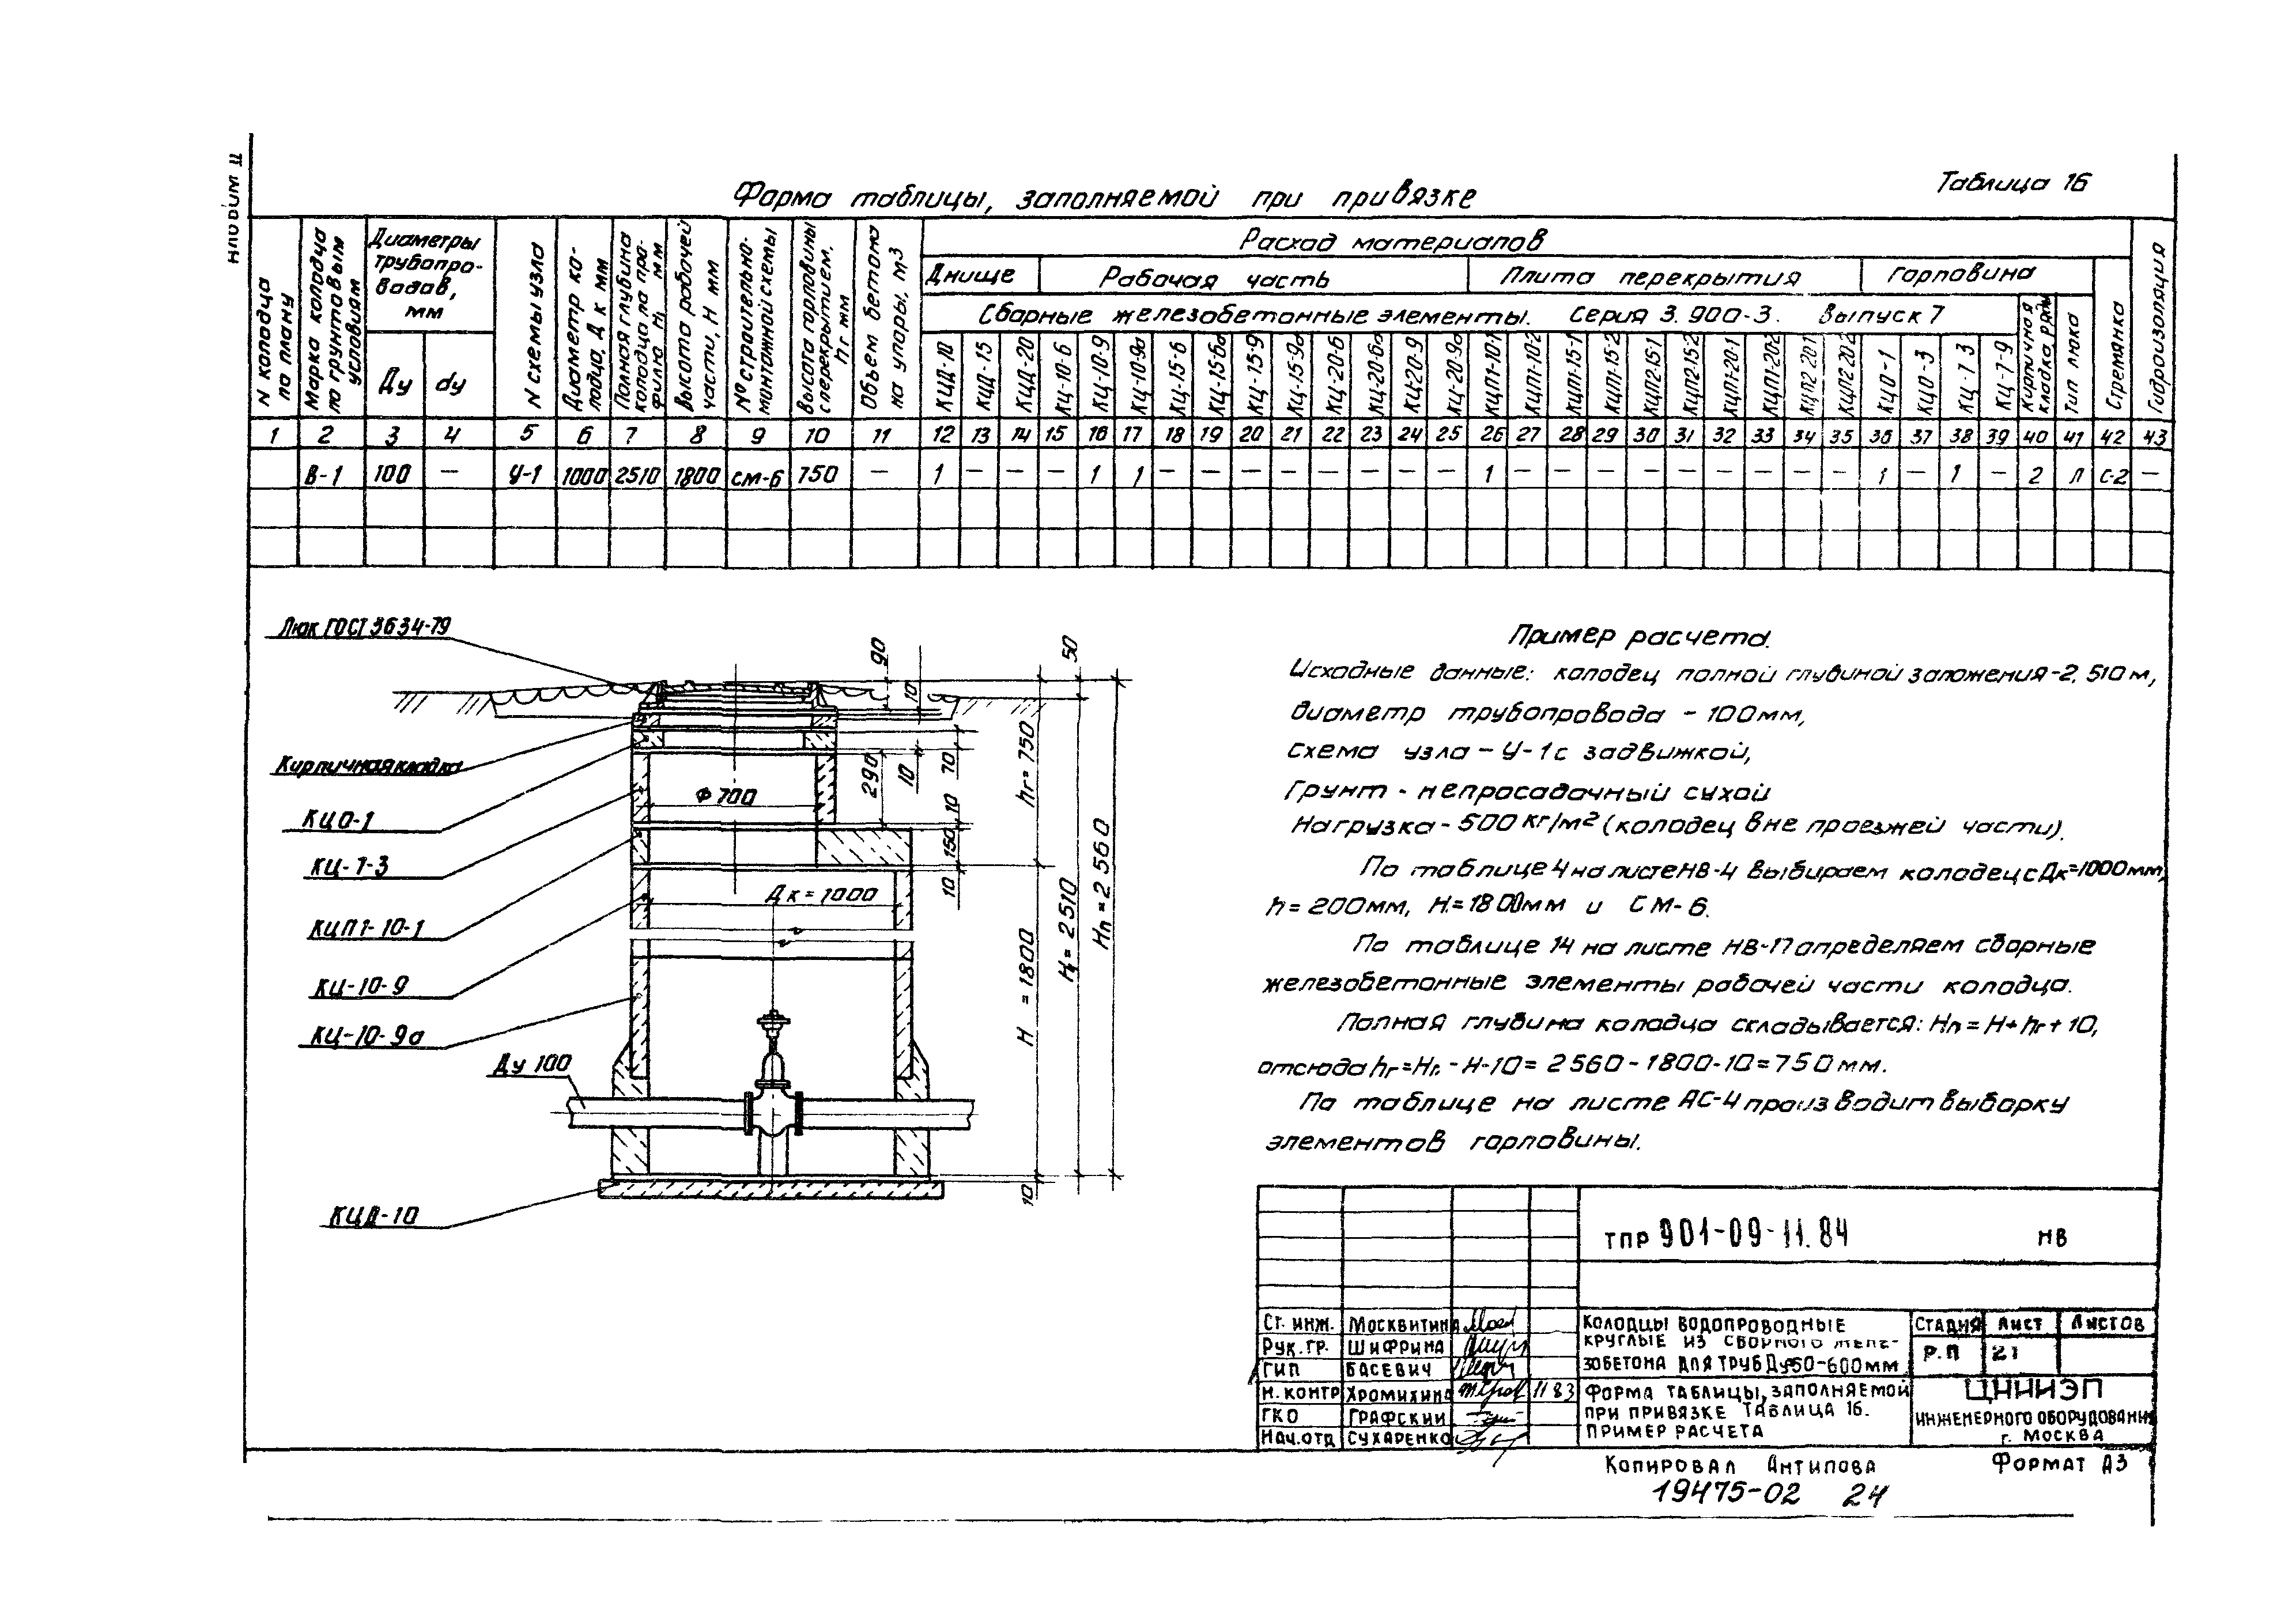 Альбом II
Таблица 16
Форма таблицы, заполняемой при привязке
N колодца по плану
Марка колодца по грунтовым условиям
Диаметры трубопроводов, мм
Ду
dу
N схемы узла
Диаметр колодца, Дк мм
Полная глубина колодца по профилю Н1 мм
Высота рабочей части, Н мм
№ строительно-монтажной схемы
Высота горловины с перекрытием, hг мм
Объем бетона на упоры, м3
Расход материалов
Днище
Рабочая часть
Плита перекрытия
Горловина
Стремянка
Гидроизоляция
Сборные железобетонные элементы. Серия 3.900-3. Выпуск 7
Кирпичная кладка, ряды
Тип люка
КЦД-10 КЦД-15 КЦД-20 КЦ-10-6 КЦ-10-9 КЦ-10-9а КЦ-15-6 КЦ-15-6а КЦ-15-9 КЦ-15-9а КЦ-20-6 КЦ-20-6а КЦ-20-9 КЦ-20-9а КЦП1-10-1 КЦП1-10-2 КЦП1-15-1 КЦП1-15-2 КЦП2-15-1 КЦП2-15-2 КЦП1-20-1 КЦП1-20-2 КЦП2 20-1 КЦП2 20-2 КЦО-1 КЦО-3 КЦ-7-3 КЦ-7-9
1 2 3 4 5 6 7 8 9 10 11 12 13 14 15 16 17 18 19 20 21 22 23 24 25 26 27 28 29 30 31 32 33 34 35 36 37 38 39 40 41 42 43
В-1 100 — У-1 1000 2510 1800 СМ-6 750 — 1 — — — 1 1 — — — — — — — — 1 — — — — — — — — — 1 — 1 — 2 Л С-2 —
Люк ГОСТ 3634-79
Кирпичная кладка
КЦО-1
КЦ-7-3
КЦП1-10-1
КЦ-10-9
КЦ-10-9а
Ду 100
КЦД-10
Ф 700
Дк = 1000
90
10
50
290
10
70
10
150
10
hг = 750
Н = 1800
Н1 = 2510
Нп = 2560
10
Пример расчета.
Исходные данные: колодец полной глубиной заложения-2.510м,
диаметр трубопровода - 100мм,
схема узла - У-1 с задвижкой,
Грунт - непросадочный сухой
Нагрузка - 500 кг/м2 (колодец вне проезжей части).
По таблице 4 на листе НВ-4 выбираем колодец с Дк=1000мм,
h = 200мм, Н = 1800мм и СМ-6.
По таблице 14 на листе НВ-17 определяем сборные
железобетонные элементы рабочей части колодца.
Полная глубина колодца складывается: Нп = Н + hг + 10,
отсюда hг = Нп - Н-10 = 2560 - 1800-10 = 750 мм.
По таблице на листе АС-4 производит выборку
элементов горловины.
ТПР 901-09-11.84 НВ
Ст. инж. Москвитина
Рук. гр. Шифрина
ГИП Басевич
Н. контр Хромихина 11 83
ГКО Графский
Нач. отд Сухаренко
Колодцы водопроводные
круглые из сборного желе-
зобетона для труб Ду50-600мм
Стадия Лист Листов
Р.П 21
Форма таблицы, заполняемой
при привязке таблица 16.
Пример расчета
ЦНИИЭП
инженерного оборудования
г. Москва
Копировал Антипова Формат А3
19475-02 24